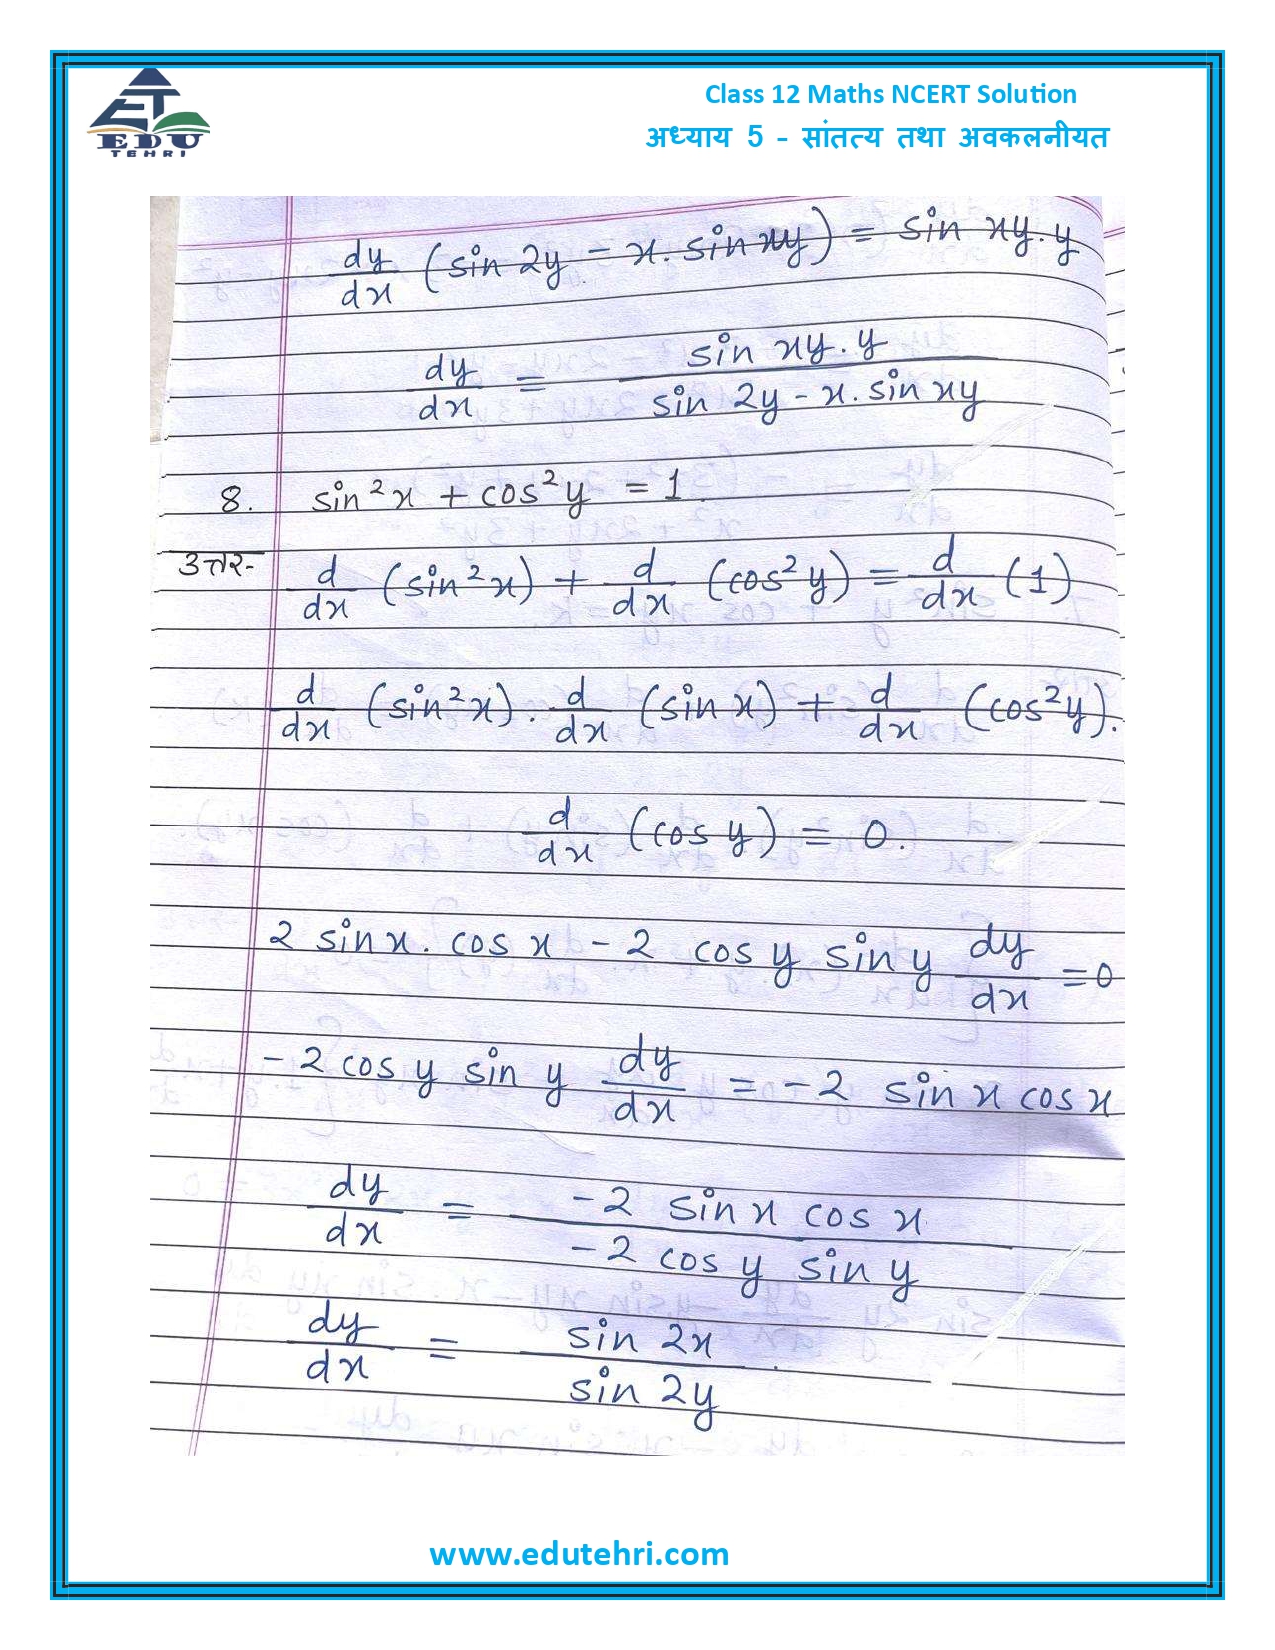 EDU
TEHRI
Class 12 Maths NCERT Solution
अध्याय 5 - सांतत्य तथा अवकलनीयत
dy/dx (sin 2y - x. sin xy) = sin xy. y
dy/dx = sin xy. y / sin 2y - x. sin xy
8. sin²x + cos²y = 1.
उत्तर- d/dx (sin²x) + d/dx (cos²y) = d/dx (1)
d/dx (sin²x). d/dx (sin x) + d/dx (cos²y).
d/dx (cos y) = 0.
2 sin x. cos x - 2 cos y sin y dy/dx = 0
-2 cos y sin y dy/dx = -2 sin x cos x
dy/dx = -2 sin x cos x / -2 cos y sin y
dy/dx = sin 2x / sin 2y.
www.edutehri.com